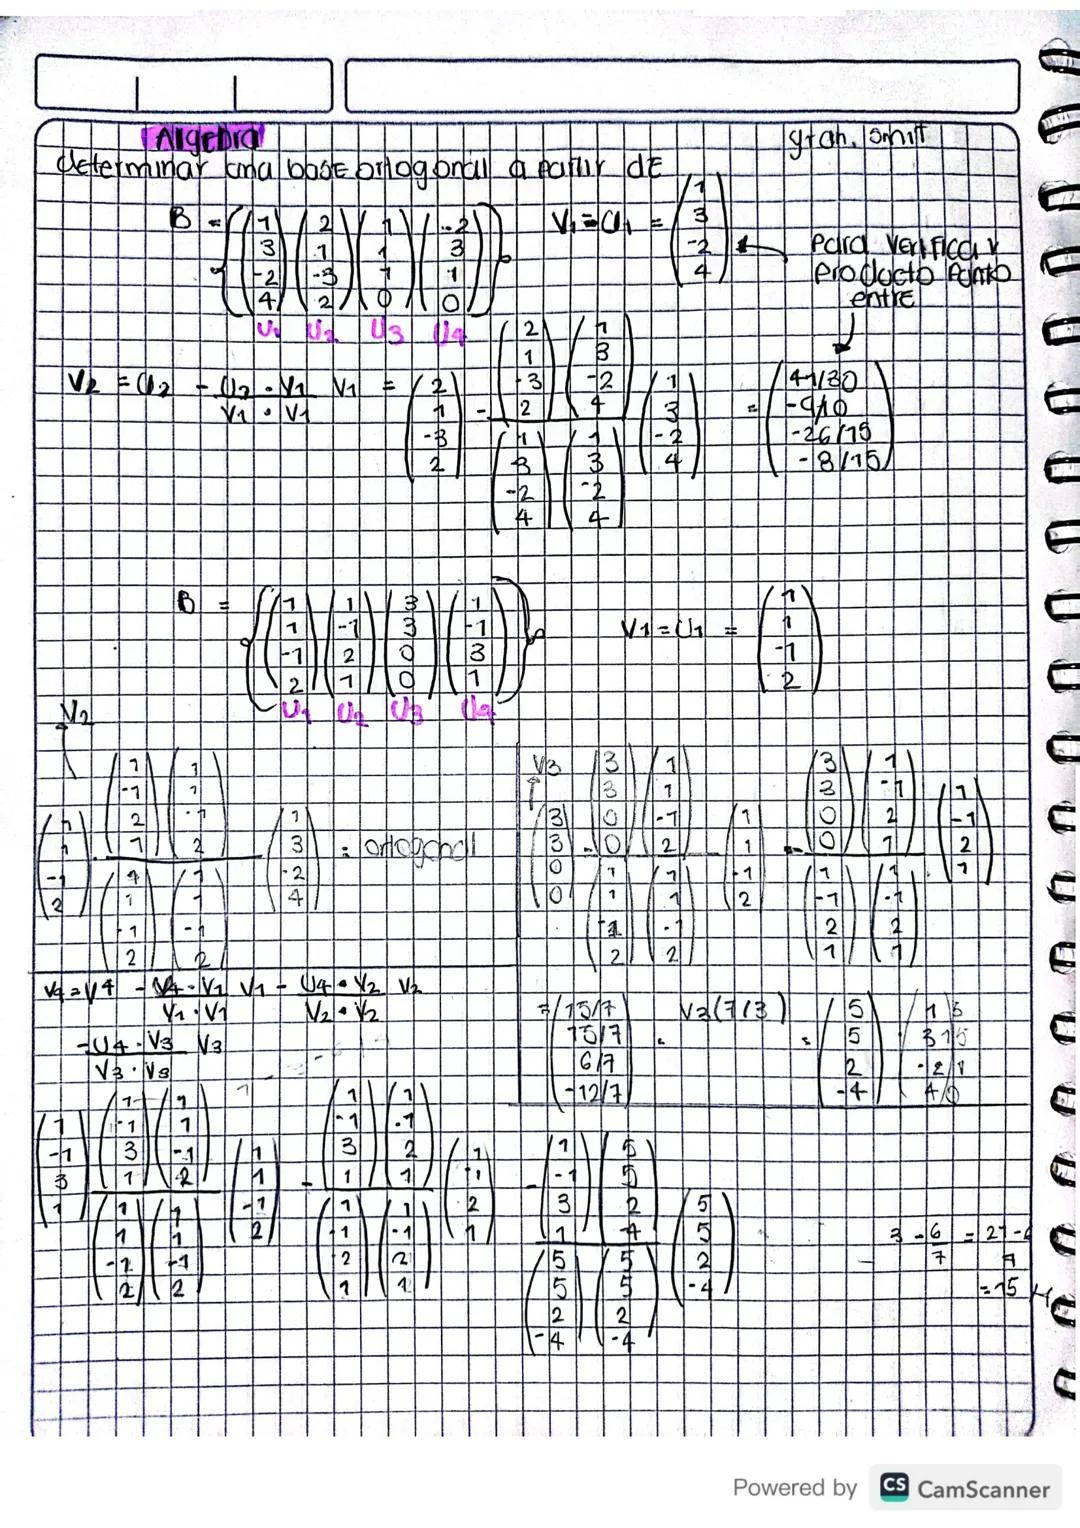 Algebra
gran. smitt
determinar una base ortogonal a partir dE
B = { (1 3 -2 4) (2 1 -3 2) (1 1 1 0) (-2 3 1 0) }
U1 U2 U3 U4
V1 = U1 = (1 3 -2 4)
Para verificar
producto Punto
entre
V2 = U2 - U2 · V1 / V1 · V1 V1 = (2 1 -3 2) - (2 1 -3 2) (1 3 -2 4) / (1 3 -2 4) (1 3 -2 4) (1 3 -2 4) = (41/30 -9/10 -26/15 -8/15)
B = { (1 1 -1 2) (1 -1 2 1) (3 3 0 0) (1 -1 3 1) }
U1 U2 U3 U4
V1 = U1 = (1 1 -1 2)
V2
(1 1 -1 2) - (1 -1 2 1) (1 1 -1 2) / (1 1 -1 2) (1 1 -1 2) (1 3 -2 4) = ortogonal
V3
(3 3 0 0) - (3 3 0 0) (1 1 -1 2) / (1 1 -1 2) (1 1 -1 2) (1 1 -1 2) - (3 3 0 0) (1 -1 2 1) / (1 -1 2 1) (1 -1 2 1) (1 -1 2 1)
= (15/7 15/7 6/7 -12/7) . V3 (7/3) = (5 5 2 -4)
V4 = V4 - V4 · V1 / V1 · V1 V1 - U4 · V2 / V2 · V2 V2
- U4 · V3 / V3 · V3 V3
(1 -1 3 1) (1 -1 3 1) (1 1 -1 2) / (1 1 -1 2) (1 1 -1 2) (1 1 -1 2) - (1 -1 3 1) (1 -1 2 1) / (1 -1 2 1) (1 -1 2 1) (1 -1 2 1) - (1 -1 3 1) (5 5 2 -4) / (5 5 2 -4) (5 5 2 -4) (5 5 2 -4)
3 - 6/7 = 21-6/7
= 15
Powered by CS CamScanner